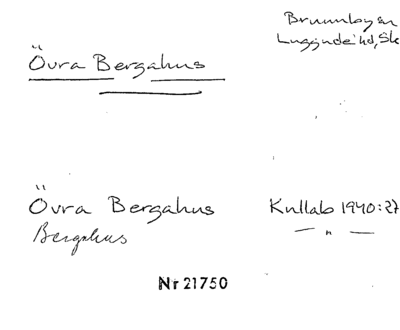 Brunnby sn
Luggude hd, Sk
Övra Bergahus
Övra Bergahus
Kullab 1940:27
Bergahus
— " —
Nr 21750